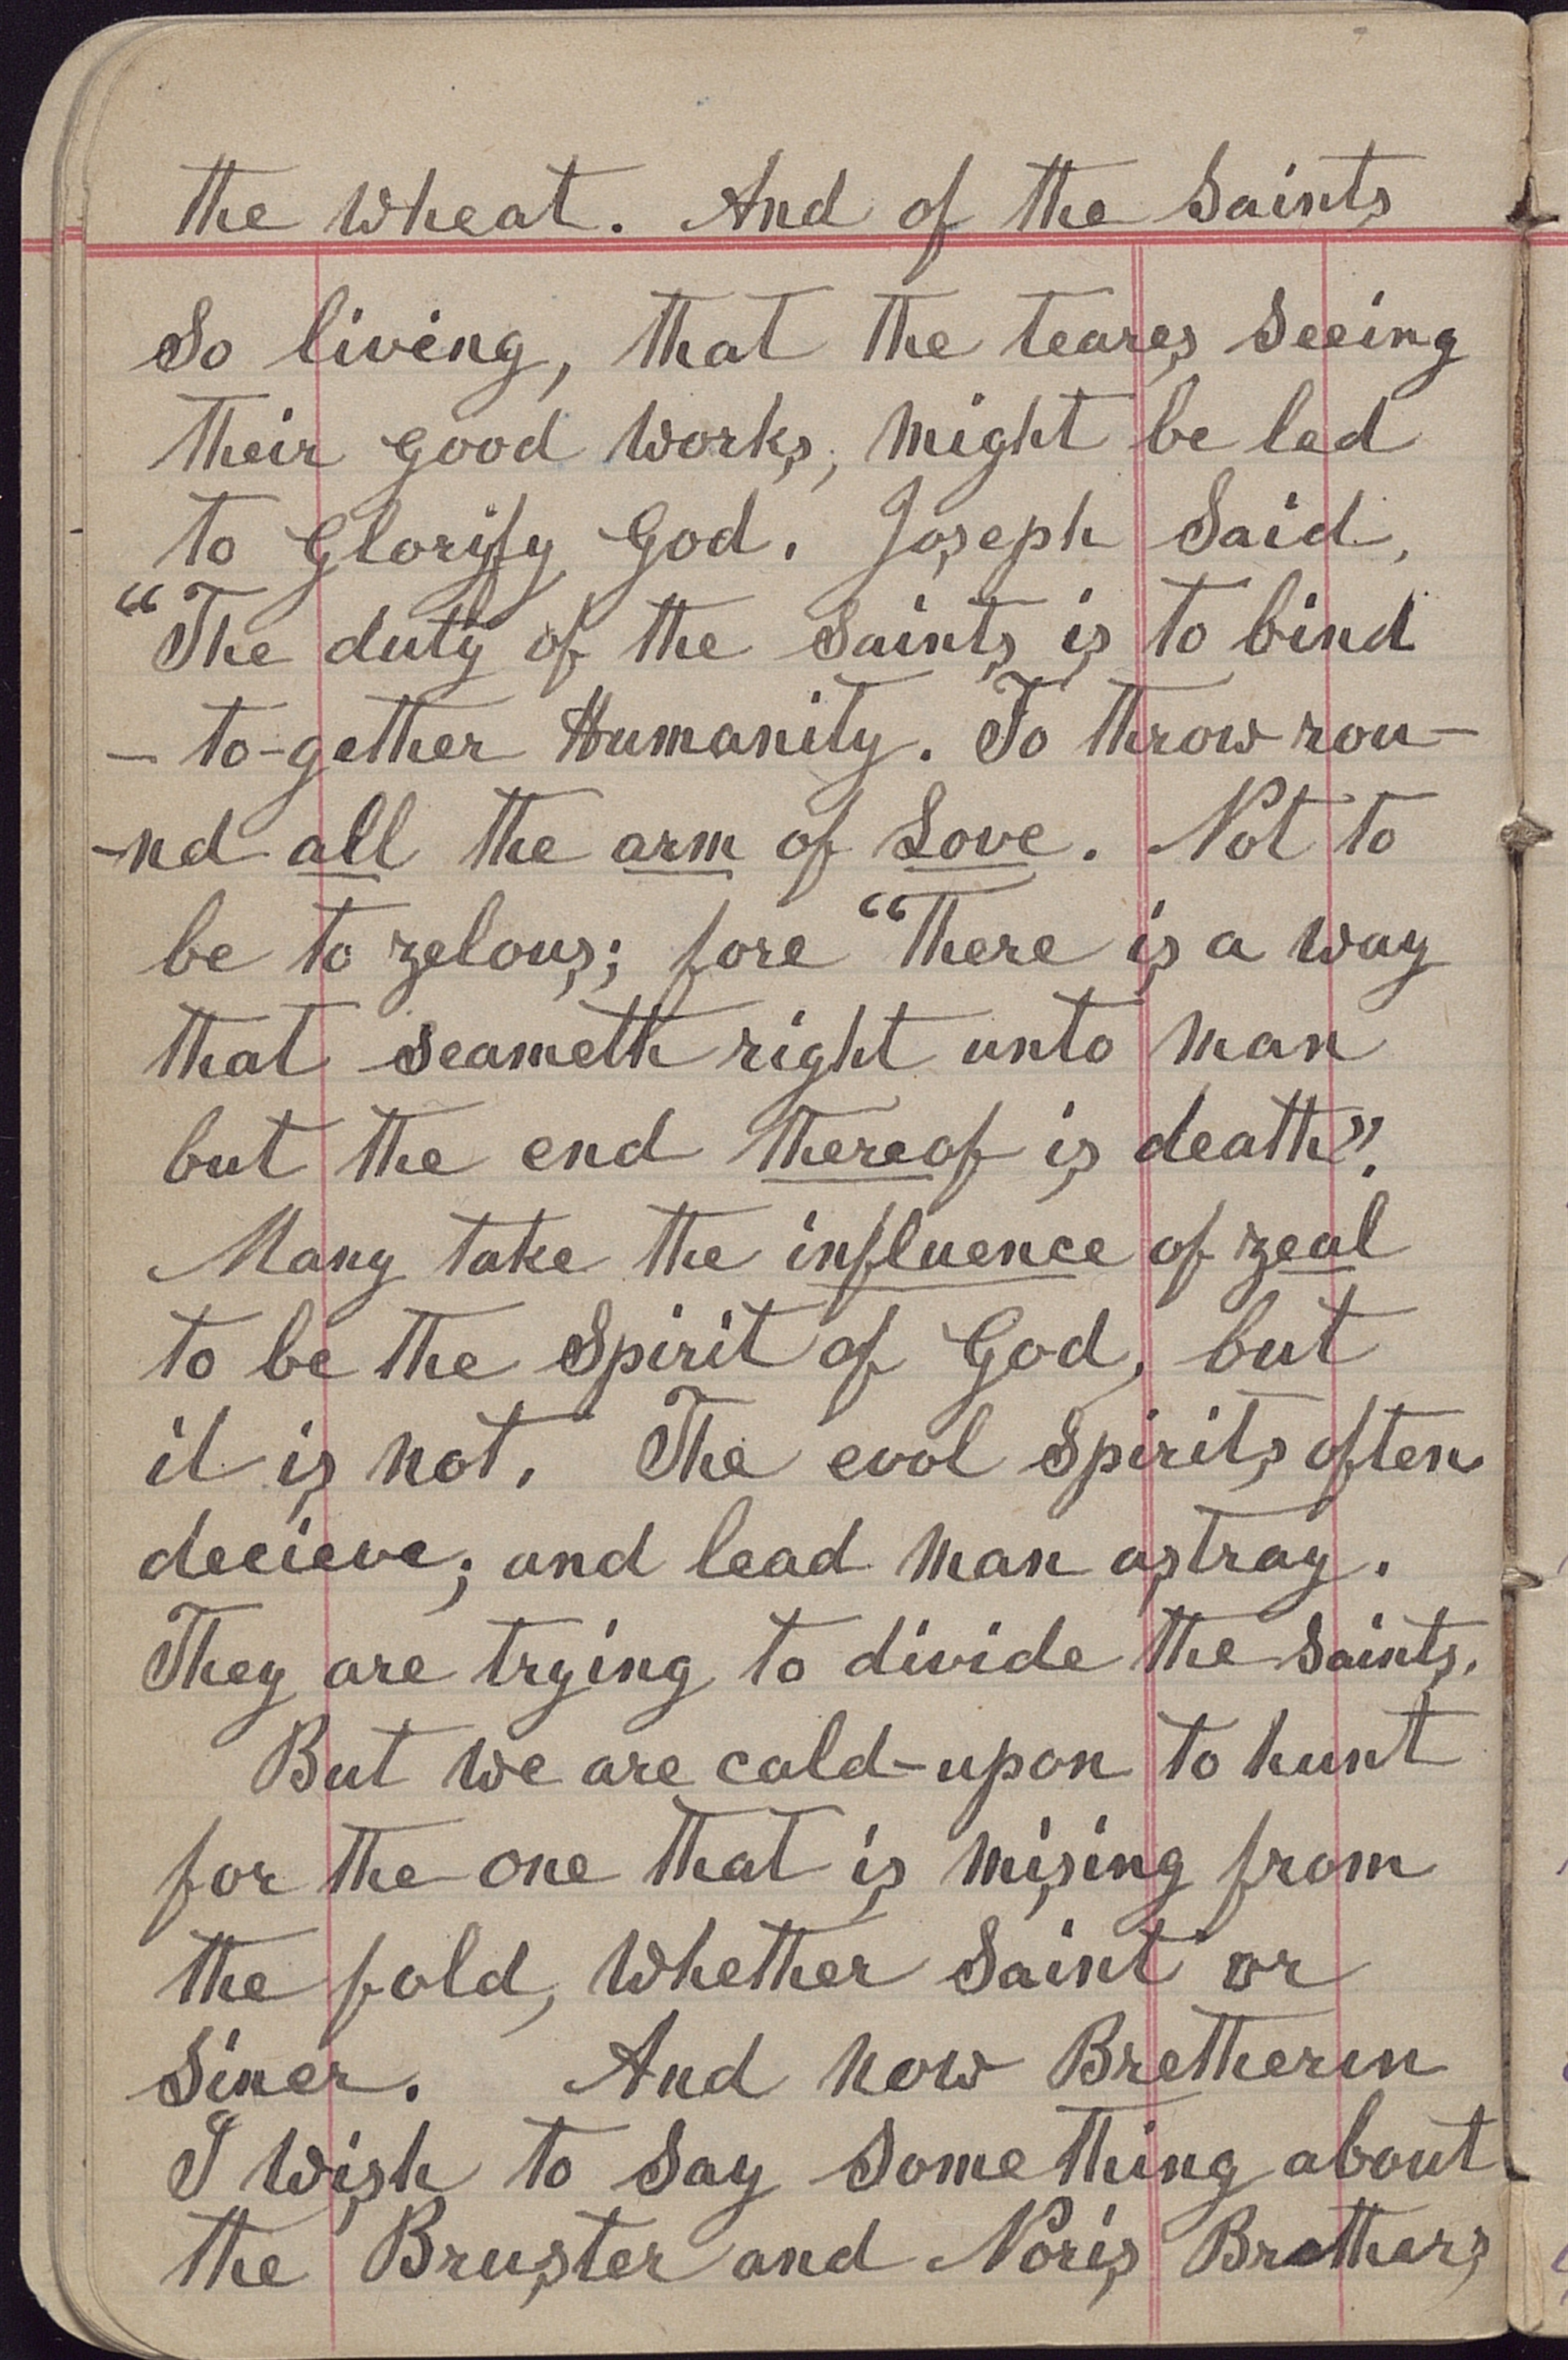 the wheat. And of the Saints
So living, that the teares seeing
their good works, might be led
to Glorify God. Joseph Said,
“The duty of the Saints is to bind
– to-gether Humanity. To throw rou-
-nd all the arm of Love. Not to
be to zelous; fore “There is a way
that seameth right unto man
but the end thereof is death”.
Many take the influence of zeal
to be the Spirit of God, but
it is not. The evol Spirits often
decieve; and lead man astray.
They are trying to divide the Saints.
But we are cald-upon to hunt
for the one that is mising from
the fold, whether Saint or
Siner. And now Bretherin
I wish to Say Some thing about
the Bruster and Noris Brothers